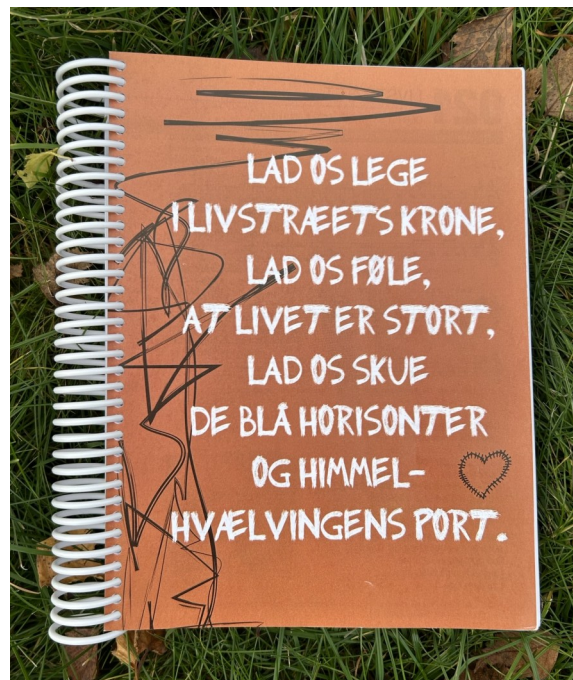 LAD OS LEGE
I LIVSTRÆETS KRONE,
LAD OS FØLE,
AT LIVET ER STORT,
LAD OS SKUE
DE BLÅ HORISONTER
OG HIMMEL-
HVÆLVINGENS PORT.